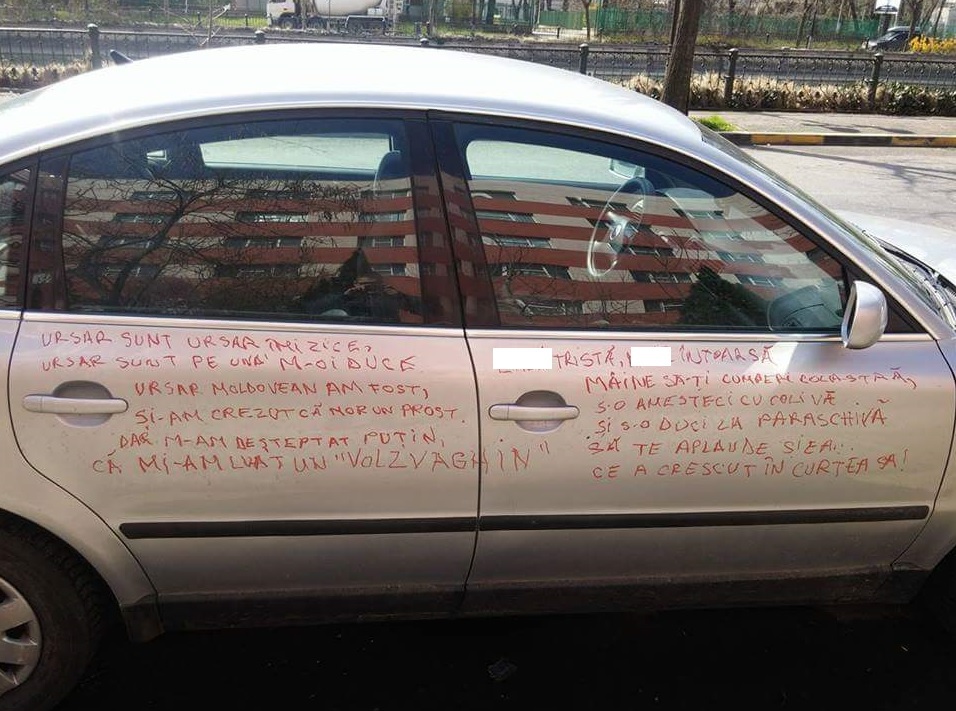 URSAR SUNT URSAR IMI ZICE,
URSAR SUNT PE UNDI M-OI DUCE
URSAR MOLDOVEAN AM FOST,
ȘI-AM CREZUT CĂ MOR UN PROST.
DAR M-AM DEȘTEPTAT PUȚIN,
CĂ MI-AM LUAT UN "VOLZVAGHIN"
TRISTĂ, ÎNTOARSĂ
MÂINE SA-ȚI CUMPERI
S-O AMESTECI CU COLIVĂ
ȘI S-O DUCI LA PARASCHIVĂ
SĂ TE APLAUDE ȘI EA..
CE A CRESCUT ÎN CURTEA SA!